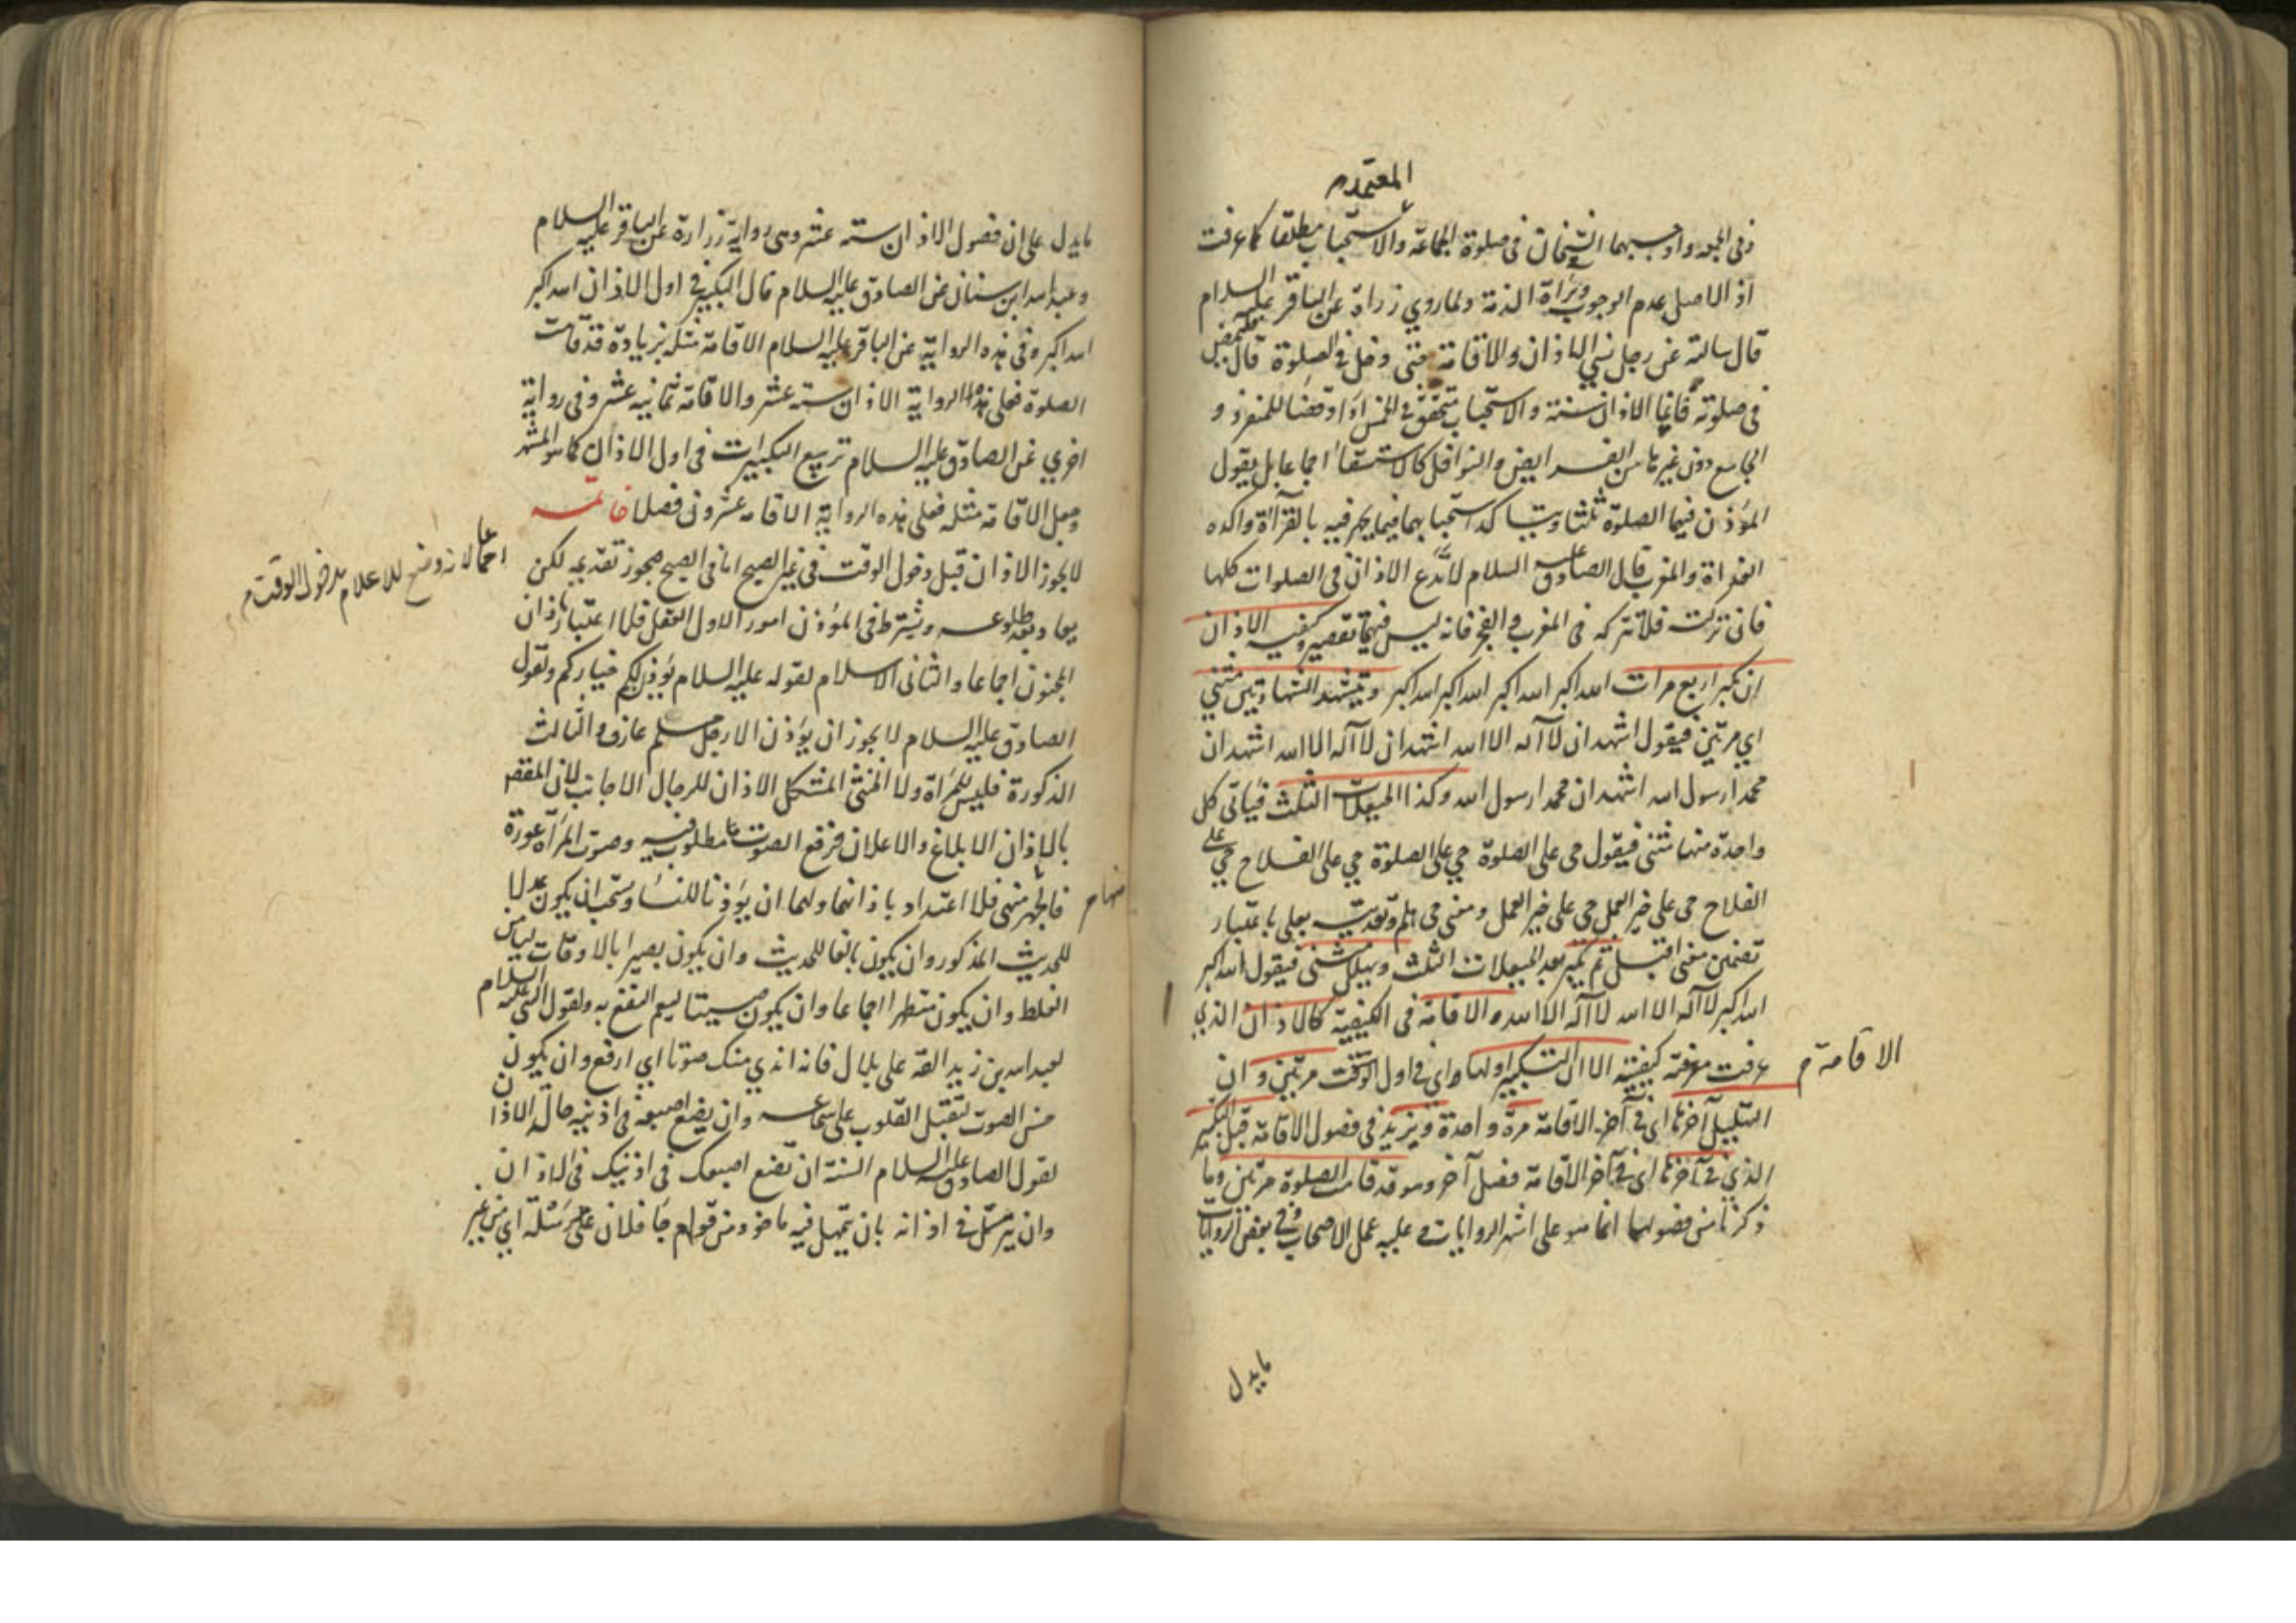 المعتمد م
وفي الجمعه واوجبهما الشيخان في صلوة الجماعة والاستحباب مطلقا كما عرفت
اذ الاصل عدم الوجوب وبراة الذمة ولما روي زرارة عن الباقر عليه السلام
قال سالته عن رجل نسي الاذان والاقامة حتى دخل في الصلوة قال فليمض
في صلوته فانما الاذان سنة والاستحباب متحقق في الخمس اداء وقضا للمنفرد و
الجامع دون غيرها من الفرايض والنوافل كالاستسقا اجماعا بل يقول
المؤذن فيها الصلوة ثلثا ويتاكد استحبابهما فيما يجهر فيه بالقرآة واكده
الغداة والمغرب قال الصادق عليه السلام لا تدع الاذان في الصلوات كلها
فان تركته فلا تتركه في المغرب والفجر فانه ليس فيهما تقصير وكيفيه الاذان
ان يكبر اربع مرات الله اكبر الله اكبر الله اكبر الله اكبر ويتشهد الشهادتين مثنى
اي مرتين فيقول اشهد ان لا آله الا الله اشهد ان لا آله الا الله اشهد ان
محمدا رسول الله اشهد ان محمدا رسول الله وكذا الحيعلات الثلث فياتي كل
واحدة منها مثنى فيقول حي على الصلوة حي على الصلوة حي على الفلاح حي على
الفلاح حي على خير العمل حي على خير العمل ومعنى حي هلم وتعديته بعلى باعتبار
تضمن معنى اقبل ثم يكبر بعد الحيعلات الثلث ويهلل مثنى فيقول الله اكبر
الله اكبر لا آله الا الله لا آله الا الله والاقامة في الكيفية كالاذان الذي
عرفت معرفة كيفيته الا ان التكبير اولها اي في اول الوقت مرتين وان
الاقامة م
التهليل آخرها اي في آخر الاقامة مرة واحدة ويزيد في فصول الاقامة قبل التكبير
الذي في آخرها اي في آخر الاقامة فصل آخر وهو قد قامت الصلوة مرتين وما
ذكرنا من فصولهما انما هو على اشهر الروايات وعليه عمل الاصحاب وفي بعض الروايات
مايدل
مايدل على ان فصول الاذان ستة عشر وهي رواية زرارة عن الباقر عليه السلام
وعبدالله ابن سنان عن الصادق عليه السلام قال التكبير في اول الاذان الله اكبر
الله اكبر وفي هذه الرواية عن الباقر عليه السلام الاقامة مثله بزيادة قد قامت
الصلوة فعلى هذه الرواية الاذان ستة عشر والاقامة ثمانيه عشر وفي رواية
اخرى عن الصادق عليه السلام تربيع التكبيرات في اول الاذان كما هو المشهور
وجعل الاقامة مثله فعلى هذه الرواية الاقامة عشرون فصلا خاتمه
لا يجوز الاذان قبل دخول الوقت في غير الصبح اما في الصبح فيجوز تقديمه لكن
اجماعا لانه وضع للاعلام بدخول الوقت م
يعاد بعد طلوعه ويشترط في المؤذن امور الاول العقل فلا اعتبار باذان
المجنون اجماعا والثاني الاسلام لقوله عليه السلام يؤذن لكم خياركم ولقول
الصادق عليه السلام لا يجوز ان يؤذن الا رجل مسلم عارف والثالث
الذكورة فليس للمراة ولا الخنثى المشكل الاذان للرجال الاجانب لان المقصد
بالاذان الابلاغ والاعلان فرفع الصوت مطلوب فيه وصوت المرأة عورة
فالجهر منهى فلا اعتداد باذانهما ولهما ان يؤذنا للنساء ويستحب ان يكون عدلا
منها م
للحديث المذكور وان يكون بالغا للحديث وان يكون بصيرا بالاوقات ليامن
الغلط وان يكون متطهرا اجماعا وان يكون صيتا ليعم النفع به ولقول النبي عليه السلام
لعبدالله بن زيد القه على بلال فانه اندى منك صوتا اي ارفع وان يكون
حسن الصوت لتقبل القلوب على سماعه وان يضع اصبعه في اذنيه حالة الاذان
لقول الصادق عليه السلام السنة ان تضع اصبعك في اذنيك في الاذان
وان يترسل في اذانه بان يتمهل فيه ماخوذ من قولهم جاء فلان على رسله اي من غير